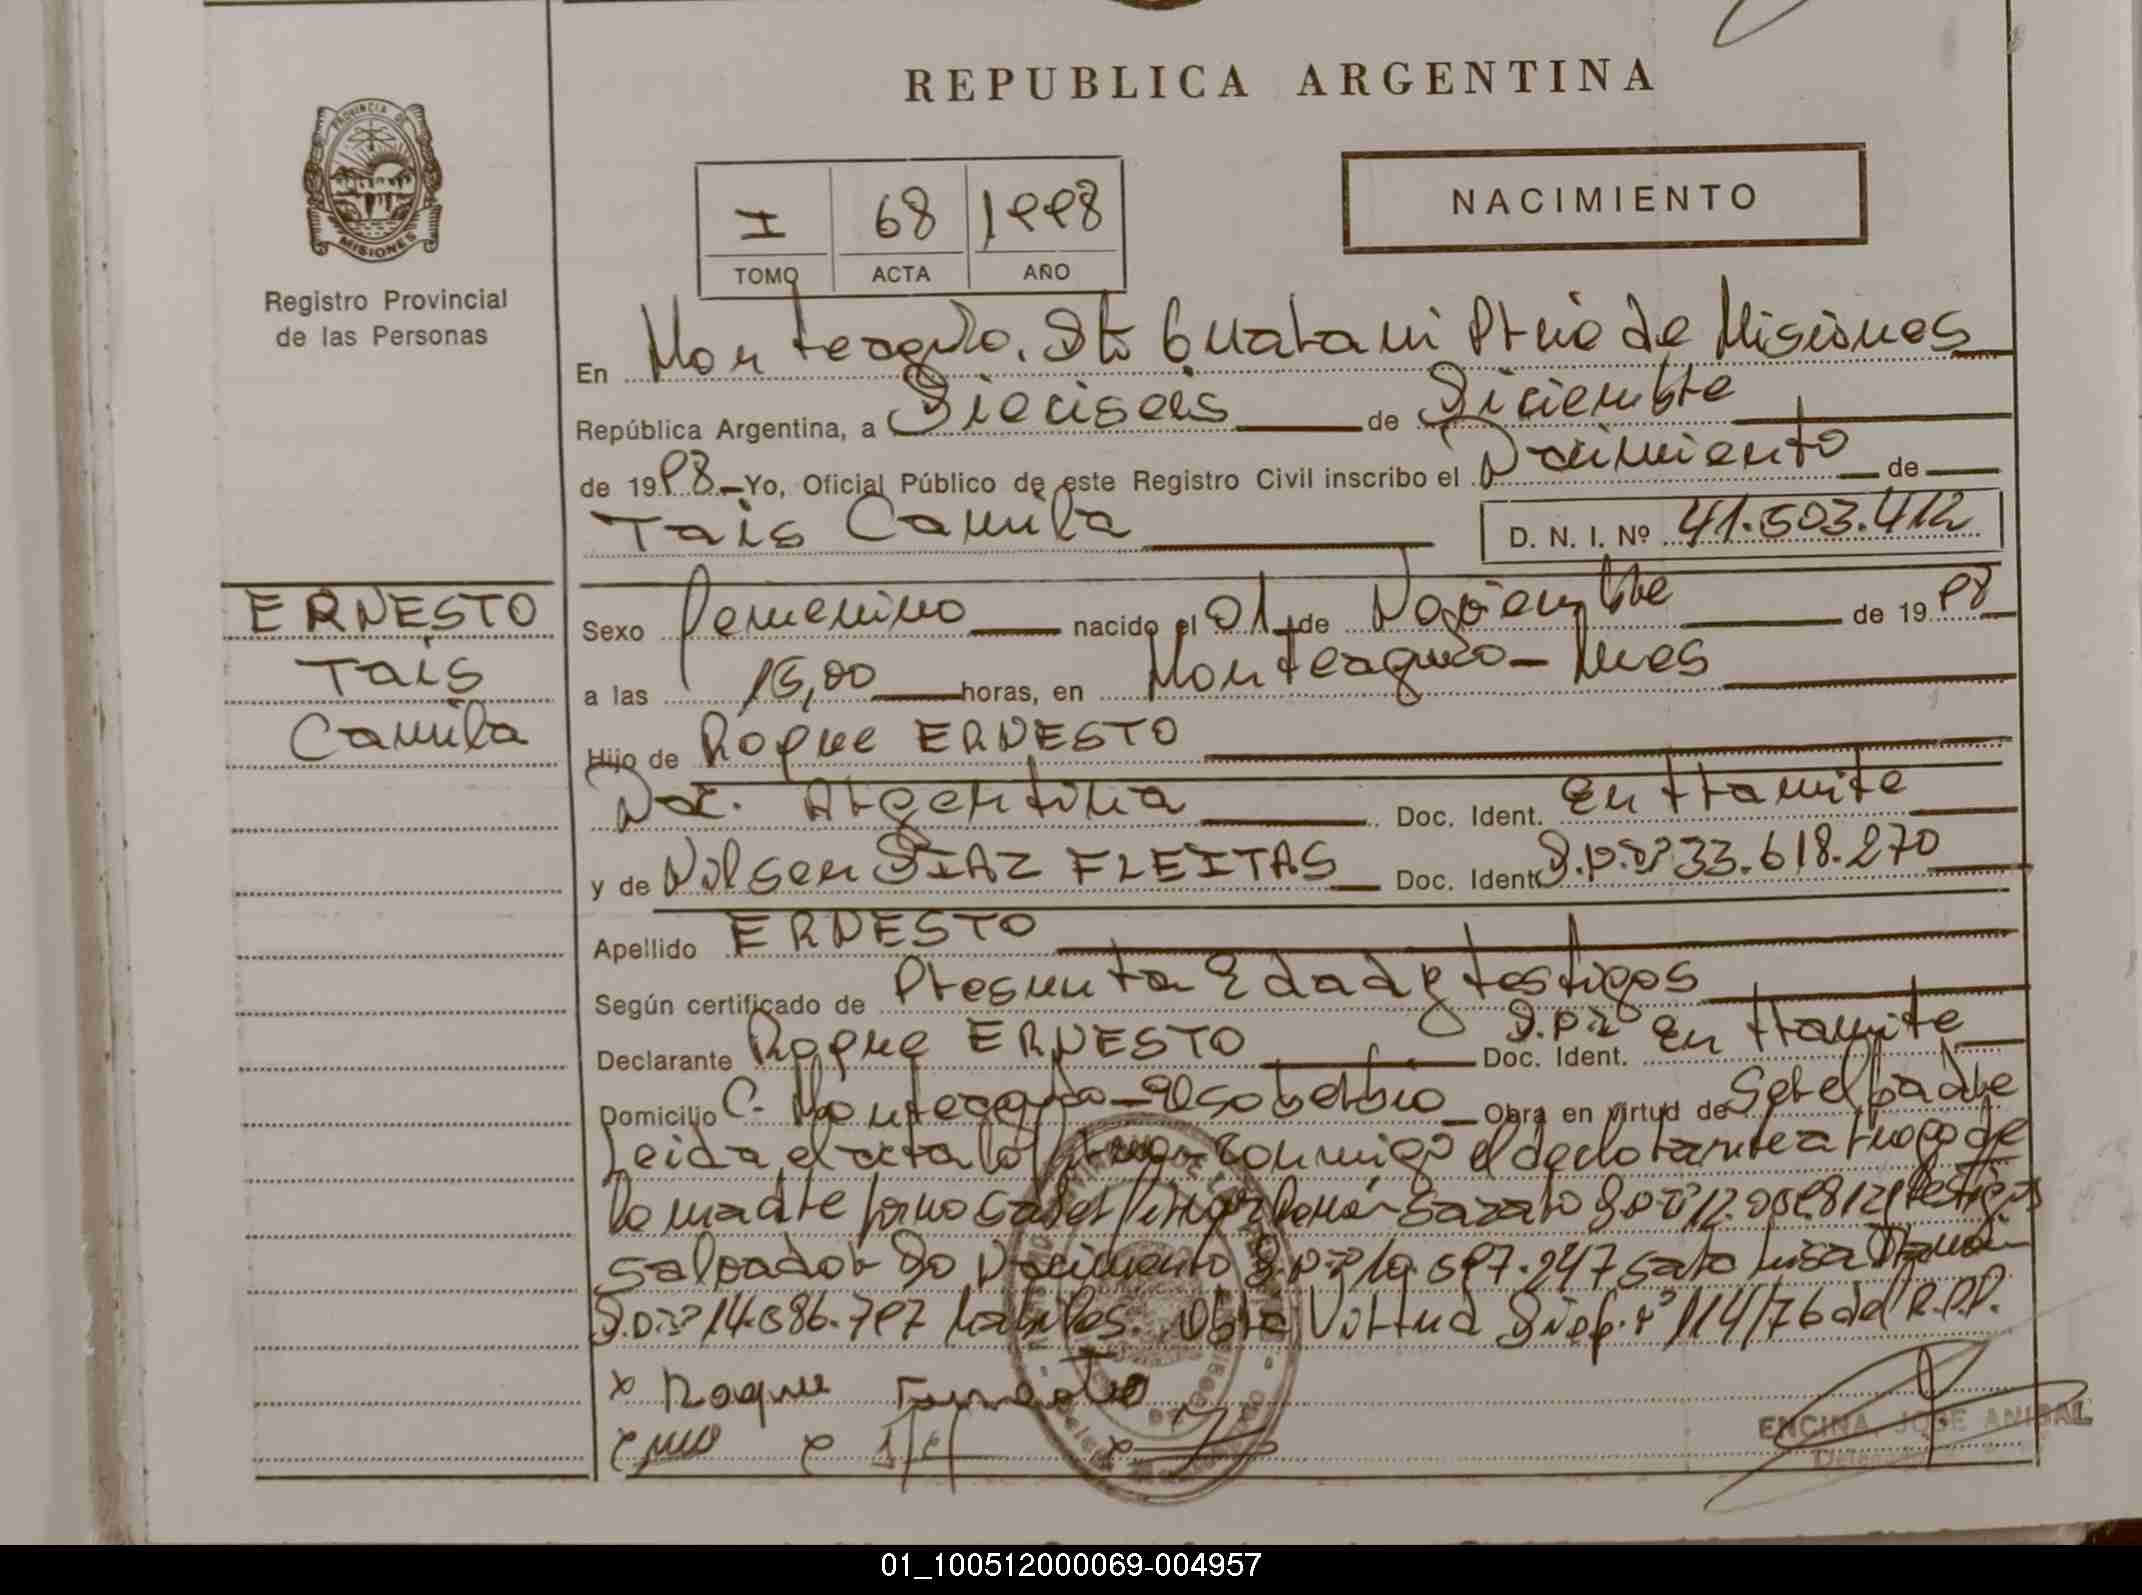 REPUBLICA ARGENTINA
PROVINCIA DE
MISIONES
Registro Provincial
de las Personas
I 68 1998
TOMO ACTA AÑO
NACIMIENTO
En Monteagudo, Dto Guarani Prvic de Misiones
República Argentina, a Dieciseis de Diciembre
de 1998 Yo, Oficial Público de este Registro Civil inscribo el Nacimiento de
Tais Camila
D. N. I. Nº 41.503.412
ERNESTO
Tais
Camila
Sexo femenino nacido el 01 de Noviembre de 1998
a las 15,00 horas, en Monteagudo - Mnes
Hijo de Roque ERNESTO
Nac. Argentina Doc. Ident. En tramite
y de Nilsen DIAZ FLEITAS Doc. Ident. D.N.Nº 33.618.270
Apellido ERNESTO
Según certificado de Presunta Edad y testigos
Declarante Roque ERNESTO Doc. Ident. D.N.Nº En tramite
Domicilio C. Monteagudo - El Soberbio Obra en virtud de Ser el padre
Leida el acta lo firma conmigo el declarante a ruego de
la madre por no saber firmar Ramón
Salvador Do Nacimento
Obra Virtud Disp. nº 114/76 del R.P.P.
x Roque Ernesto
ENCINA JOSE ANIBAL
01_100512000069-004957